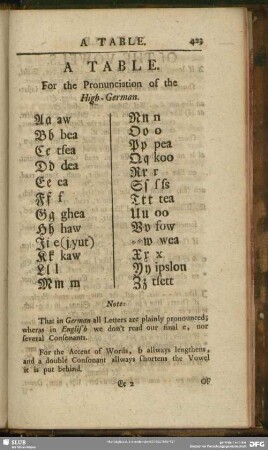 A TABLE. 423
A TABLE.
For the Pronunciation of the
High-German.
Aa aw
Bb bea
Cc tsea
Dd dea
Ee ea
Ff f
Gg ghea
Hh haw
Ji e (j,yut)
Kk kaw
Ll l
Mm m
Nn n
Oo o
Pp pea
Qq koo
Rr r
Sſ s ſſs
Ttt tea
Uu oo
Vv fow
w wea
Xx x
Yy ipslon
Zz tsett
Note:
That in German all Letters are plainly pronounced;
wheras in Engliſh we don't read our final e, nor
ſeveral Conſonants.
For the Accent of Words, h allways lengthens,
and a double Conſonant allways ſhortens the Vowel
it is put behind.
Ee 2 OF
SLUB